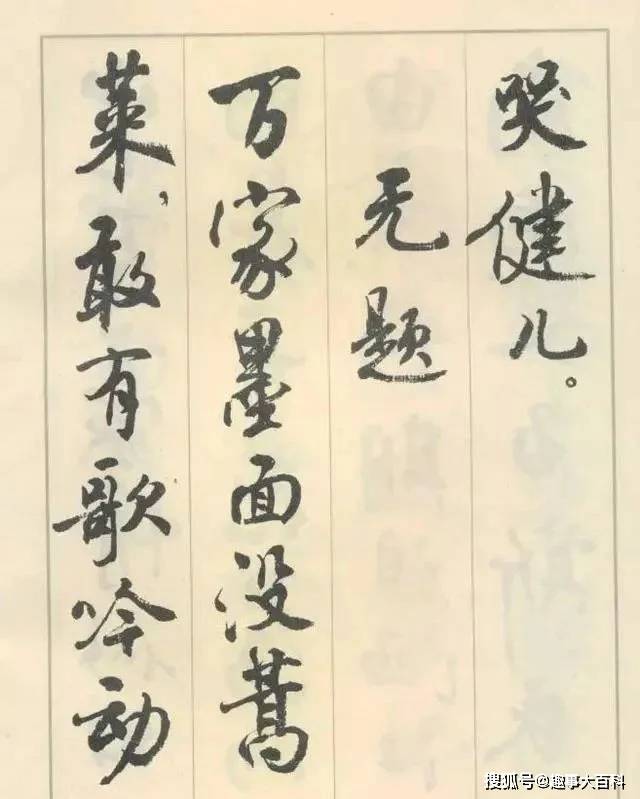 哭健儿。
无题
万家墨面没蒿
莱，敢有歌吟动
搜狐号@趣事大百科